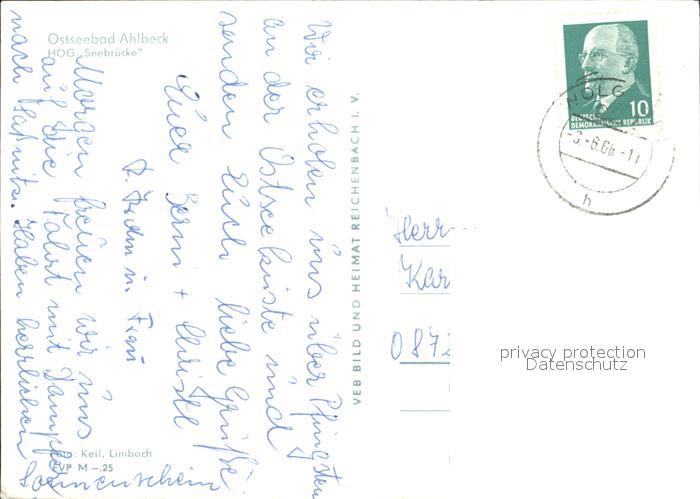 Ostseebad Ahlbeck
HOG „Seebrücke"
Wir erholen uns über Pfingsten
an der Ostseeküste und
senden Euch liebe Grüße
Eure Berni + Christl
u. Frau
Morgen freuen wir uns
auf die Fahrt mit Dampfer
nach Saßnitz. Haben herrlichen
Sonnenschein
Foto: Keil, Limbach
EVP M –.25
VEB BILD UND HEIMAT REICHENBACH I. V.
10
DEUTSCHE
DEMOKRATISCHE REPUBLIK
NOLG
-6.66-11
h
Herr
Kar
0872
privacy protection
Datenschutz